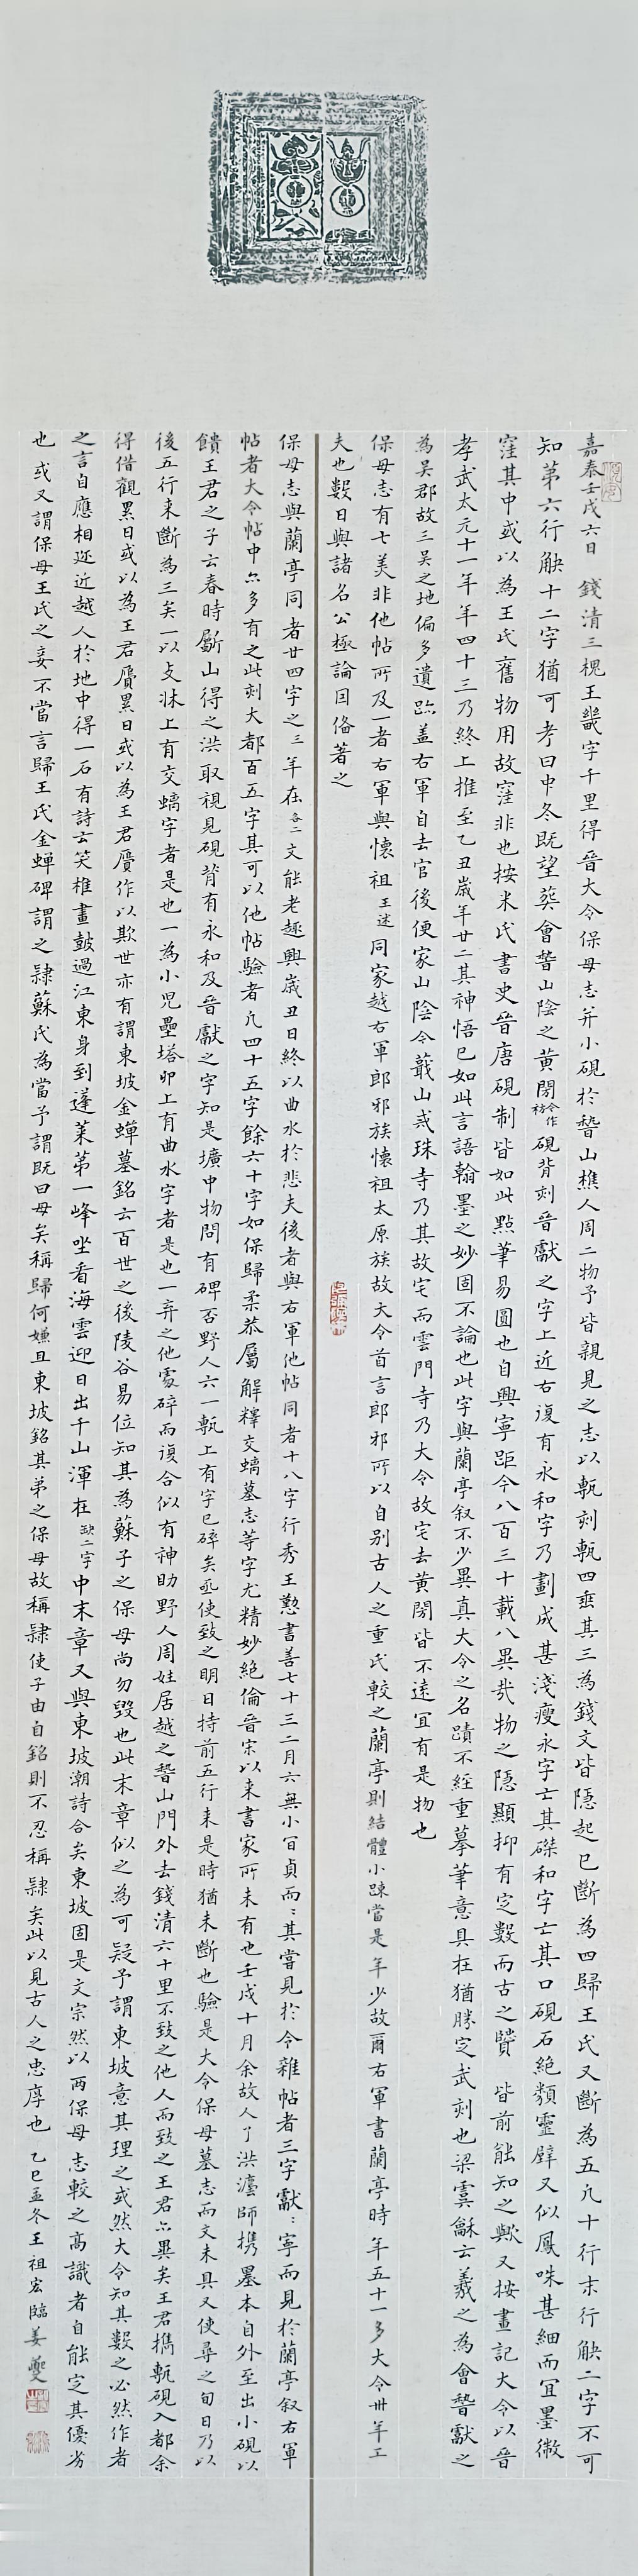 嘉泰壬戌六日 錢清三槐王畿字千里得晉大令保母志并小硯於稽山樵人周二物予皆親見之志以甎刻甎四垂其三為錢文皆隱起已斷為四歸王氏又斷為五凡十行末行缺二字不可
知第六行缺十二字猶可考曰中冬既望葬會稽山陰之黃閍硯背刻晉獻之字上近右復有永和字乃劃成甚淺瘦永字亡其磔和字亡其口硯石絕類靈壁又似鳳咮甚細而宜墨微
窪其中或以為王氏舊物用故窪非也按米氏書史晉唐硯制皆如此點筆易圓也自興寧距今八百三十載八異哉物之隱顯抑有定數而古之賢 皆前能知之歟又按畫記大令以晉
孝武太元十一年年四十三乃終上推至乙丑歲年廿二其神悟已如此言語翰墨之妙固不論也此字與蘭亭叙不少異真大令之名蹟不經重摹筆意具在猶勝定武刻也梁虞龢云羲之為會稽獻之
為吳郡故三吳之地偏多遺跡蓋右軍自去官後便家山陰今蕺山戒珠寺乃其故宅而雲門寺乃大令故宅去黃閍皆不遠宜有是物也
保母志有七美非他帖所及一者右軍與懷祖王述同家越右軍郎邪族懷祖太原族故大令首言郎邪所以自別古人之重氏較之蘭亭則結體小疎當是年少故爾右軍書蘭亭時年五十一多大令卅年工
夫也數日與諸名公極論因俻著之
保母志與蘭亭同者廿四字之三年在各二文能老趣興歲丑日終以曲水於悲夫後者與右軍他帖同者十八字行秀王懃書善七十三二月六無小百貞而其嘗見於今雜帖者三字獻寧而見於蘭亭叙右軍
帖者大令帖中亦多有之此刻大都百五字其可以他帖驗者凡四十五字餘六十字如保歸柔恭屬解釋交螭墓志等字尤精妙絕倫晉宗以來書家所未有也壬戌十月余故人了洪灋師携墨本自外至出小硯以
饋王君之子云春時斸山得之洪取視見硯背有永和及晉獻之字知是壙中物問有碑否野人六一甎上有字已碎矣亟使致之明日持前五行来是時猶未斷也驗是大令保母墓志而文未具又使尋之旬日乃以
後五行来斷為三矣一以攴牀上有交螭字者是也一為小兒壘塔卯上有曲水字者是也一弃之他處碎而復合似有神助野人周姓居越之稽山門外去錢清六十里不致之他人而致之王君亦異矣王君攜甎硯入都余
得借觀累日或以為王君贗累日或以為王君贗作以欺世亦有謂東坡金蟬墓銘云百世之後陵谷易位知其為蘇子之保母尚勿毀也此末章似之為可疑予謂東坡意其理之或然大令知其數之必然作者
之言自應相迩近越人於地中得一石有詩云笑椎畫鼓過江東身到蓬萊第一峰坐看海雲迎日出千山渾在缺二字中末章又與東坡潮詩合矣東坡固是文宗然以两保母志較之高識者自能定其優劣
也 或又謂保母王氏之妾不當言歸王氏金蟬碑謂之隸蘇氏為當予謂既曰母矣稱歸何嫌且東坡銘其弟之保母故稱隸使子由自銘則不忍稱隸矣此以見古人之忠厚也 乙巳孟冬王祖宏臨姜夔